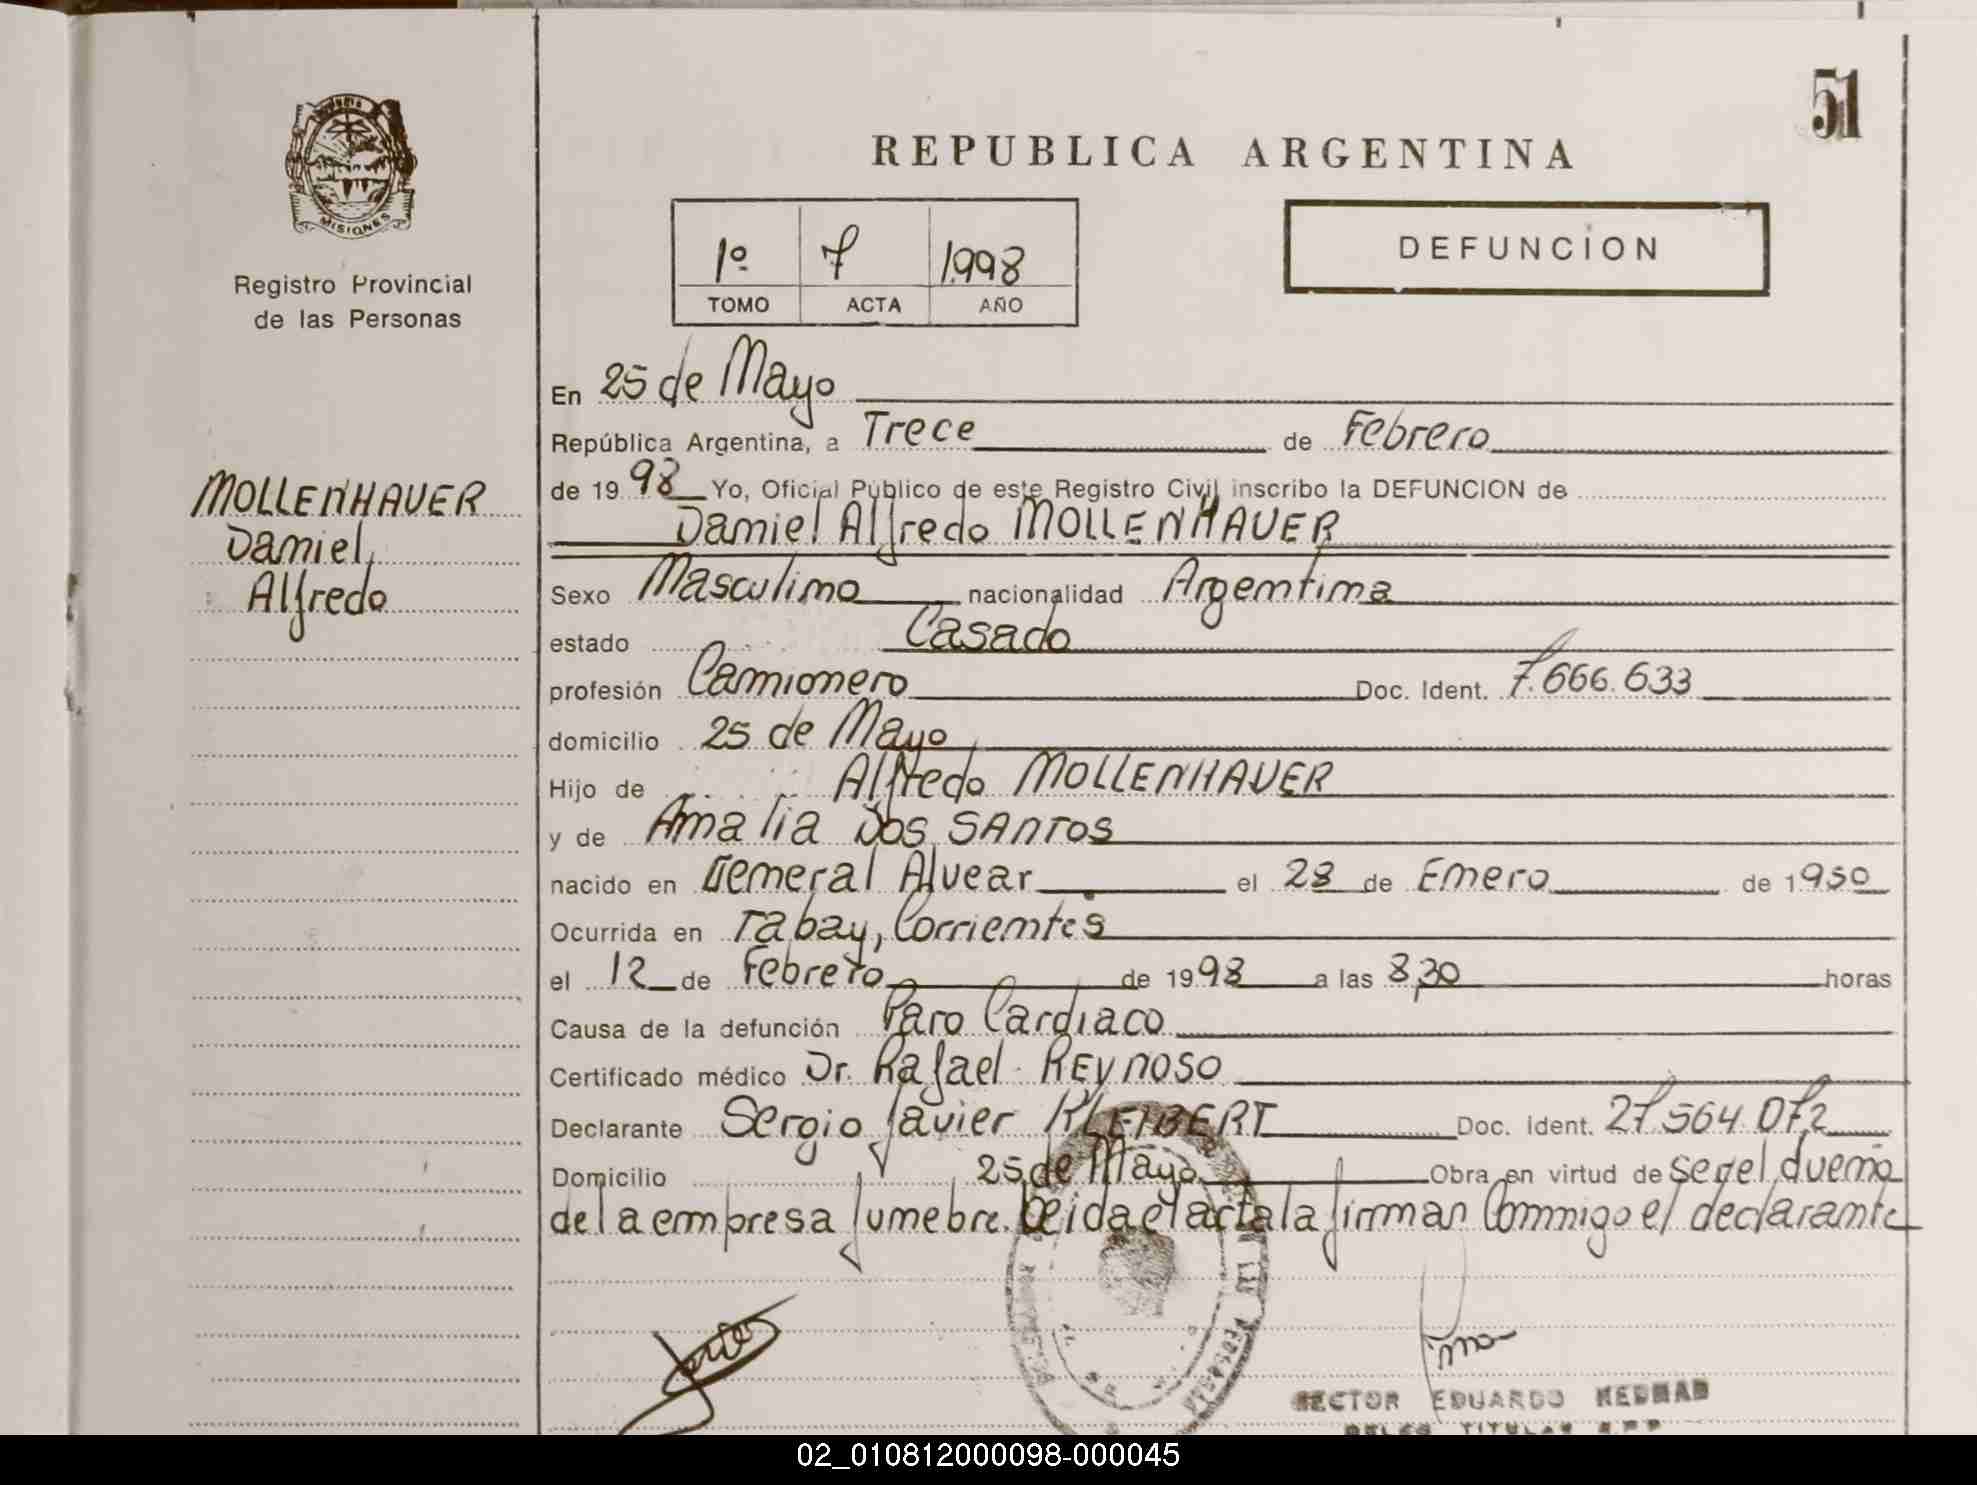 51
MISIONES
Registro Provincial
de las Personas
REPUBLICA ARGENTINA
1º 7 1998
TOMO ACTA AÑO
DEFUNCION
MOLLENHAUER
Daniel
Alfredo
En 25 de Mayo
República Argentina, a Trece de Febrero
de 19 98 Yo, Oficial Público de este Registro Civil inscribo la DEFUNCION de
Daniel Alfredo MOLLENHAUER
Sexo Masculino nacionalidad Argentina
estado Casado
profesión Camionero Doc. Ident. 7.666.633
domicilio 25 de Mayo
Hijo de Alfredo MOLLENHAUER
y de Amalia DOS SANTOS
nacido en General Alvear el 28 de Enero de 1950
Ocurrida en Tabay, Corrientes
el 12 de Febrero de 1998 a las 8,30 horas
Causa de la defunción Paro Cardiaco
Certificado médico Dr. Rafael REYNOSO
Declarante Sergio Javier KLEIBERT Doc. Ident. 27.564.072
Domicilio 25 de Mayo Obra en virtud de ser el dueño
de la empresa funebre. Leida el acta la firman Conmigo el declarante
HECTOR EDUARDO
TITULAR
02_010812000098-000045